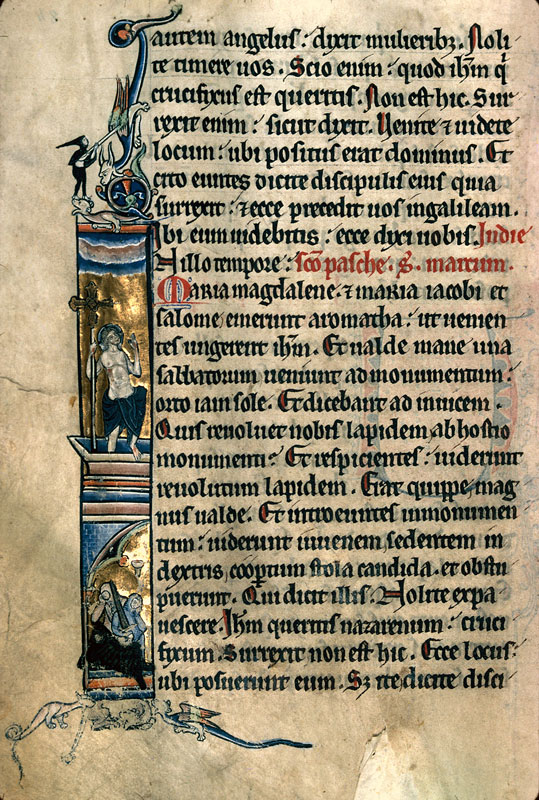 autem angelus : dixit mulieribꝫ . Noli
te timere uos . Scio enim : quod ihm̄ q̄
crucifixus est queritis . Non est hic . Sur
rexit enim : sicut dixit . Uenite ⁊ uidete
locum : ubi positus erat dominus . Et
cito euntes dicite discipulis eius quia
surrexit : ⁊ ecce precedit uos in galileam .
Ibi eum uidebitis : ecce dixi uobis . In die
In illo tempore : sc̄o pasche . S . marcum .
Maria magdalene . ⁊ maria iacobi et
salome emerunt aromatha : ut uenien
tes ungerent ihm̄ . Et ualde mane una
sabbatorum ueniunt ad monumentum :
orto iam sole . Et dicebant ad inuicem .
Quis reuoluet nobis lapidem ab hostio
monumenti ? Et respicientes : uiderunt
reuolutum lapidem . Erat quippe mag
nus ualde . Et introeuntes in monumen
tum : uiderunt iuuenem sedentem in
dextris , coopertum stola candida . et obstu
puerunt . Qui dicit illis . Nolite expa
uescere . Ihm̄ queritis nazarenum : cruci
fixum . Surrexit non est hic . Ecce locus :
ubi posuerunt eum . Sꝫ ite dicite disci